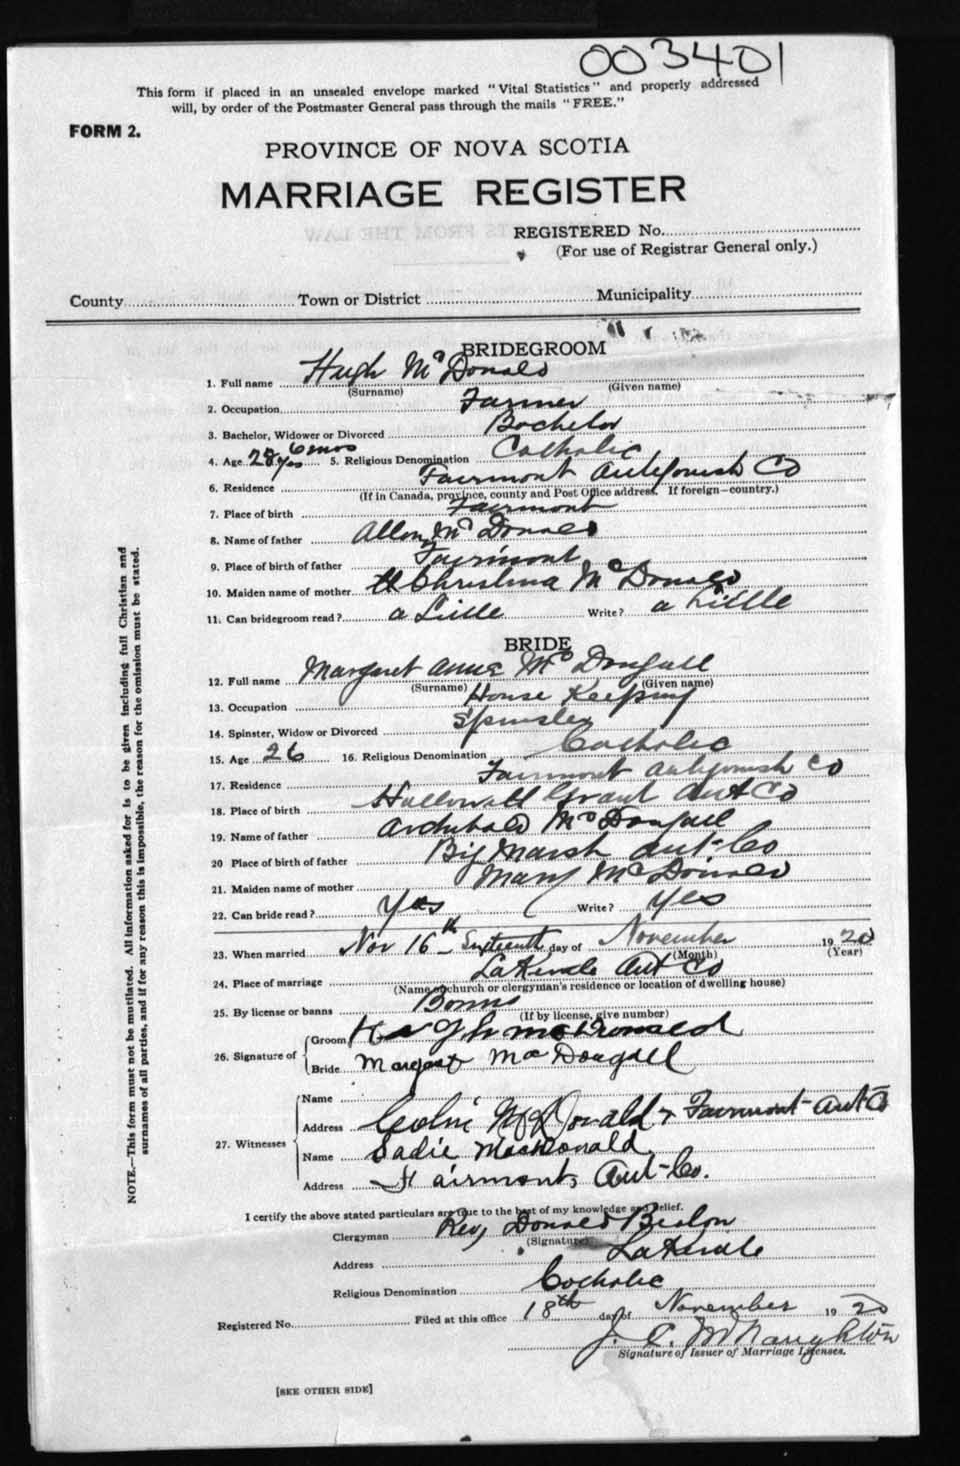 003401
This form if placed in an unsealed envelope marked "Vital Statistics" and properly addressed
will, by order of the Postmaster General pass through the mails "FREE."
FORM 2.
PROVINCE OF NOVA SCOTIA
MARRIAGE REGISTER
REGISTERED No.
(For use of Registrar General only.)
County Town or District Municipality
BRIDEGROOM
1. Full name Hugh McDonald
(Surname) (Given name)
2. Occupation Farmer
3. Bachelor, Widower or Divorced Bachelor
4. Age 28 yrs 6 mos 5. Religious Denomination Catholic
6. Residence Fairmont Antigonish Co
(If in Canada, province, county and Post Office address. If foreign—country.)
7. Place of birth Fairmont
8. Name of father Allan McDonald
9. Place of birth of father Fairmont
10. Maiden name of mother Christina McDonald
11. Can bridegroom read? a Little Write? a Little
BRIDE
12. Full name Margaret Anne McDougall
(Surname) (Given name)
13. Occupation House Keeping
14. Spinster, Widow or Divorced Spinster
15. Age 26 16. Religious Denomination Catholic
17. Residence Fairmont Antigonish Co
18. Place of birth Hallowell Grant Ant Co
19. Name of father Archibald McDougall
20 Place of birth of father Big Marsh Ant-Co
21. Maiden name of mother Mary McDonald
22. Can bride read? Yes Write? Yes
23. When married Nov 16th Sixteenth day of November 1920
(Month) (Year)
24. Place of marriage Lakevale Ant Co
(Name of church or clergyman's residence or location of dwelling house)
25. By license or banns Banns
(If by license, give number)
26. Signature of
Groom Hugh McDonald
Bride Margaret McDougall
27. Witnesses
Name
Address Colin McDonald Fairmont Ant-Co
Name Sadie MacDonald
Address Fairmont, Ant-Co.
I certify the above stated particulars are true to the best of my knowledge and belief.
Clergyman Rev, Donald
(Signature)
Address Lakevale
Religious Denomination Catholic
Registered No. Filed at this office 18th day of November 1920
J. C. McNaughton
Signature of Issuer of Marriage Licenses.
[SEE OTHER SIDE]
NOTE.—This form must not be mutilated. All information asked for is to be given including full Christian and
surnames of all parties, and if for any reason this is impossible, the reason for the omission must be stated.